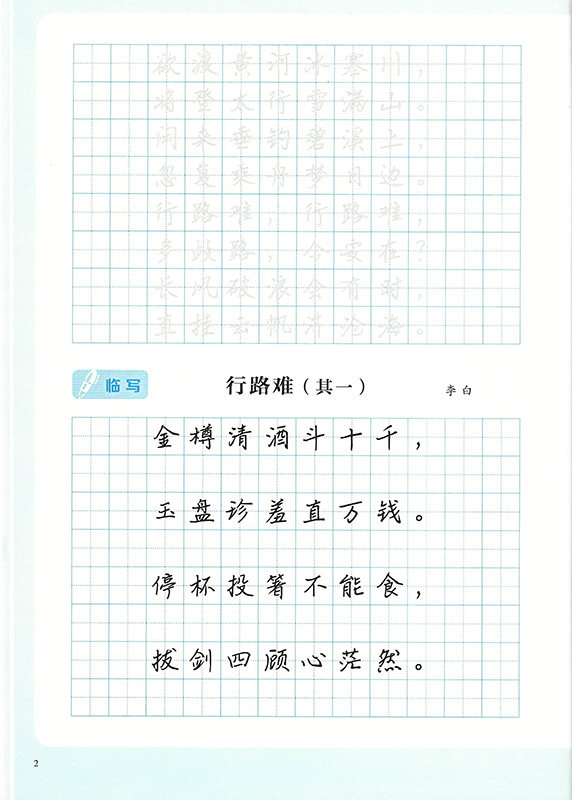 欲渡黄河冰塞川，
将登太行雪满山。
闲来垂钓碧溪上，
忽复乘舟梦日边。
行路难，行路难，
多歧路，今安在？
长风破浪会有时，
直挂云帆济沧海。
临写
行路难（其一）
李白
金樽清酒斗十千，
玉盘珍羞直万钱。
停杯投箸不能食，
拔剑四顾心茫然。
2